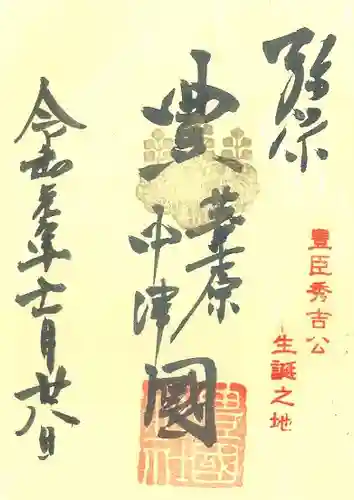 弥栄
豊臣秀吉公
生誕之地
豊葦原中津國
令和元年十一月廿八日